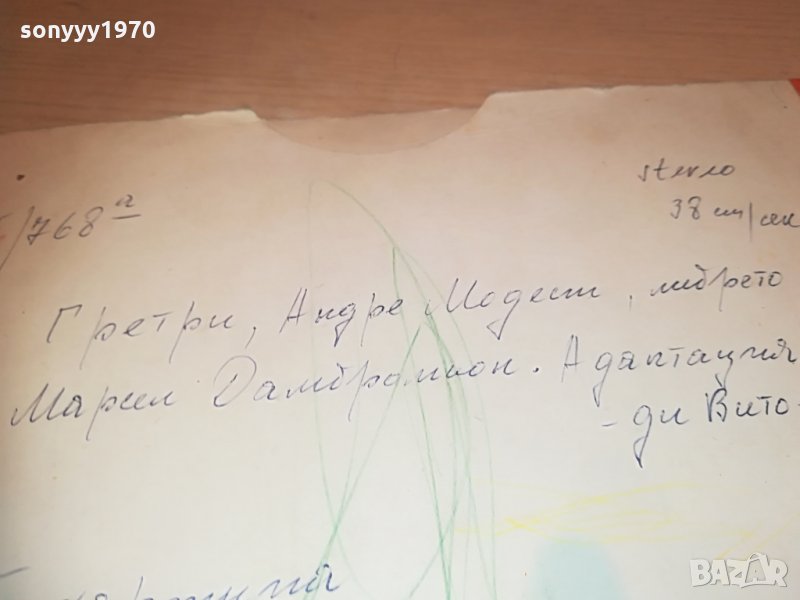 sonyyy1970
stereo
38 cm/сек
/768 а
Гретри, Андре Модест, либрето
Марсел Дамбрамион. Адаптация
- ди Вито -
BAZAR